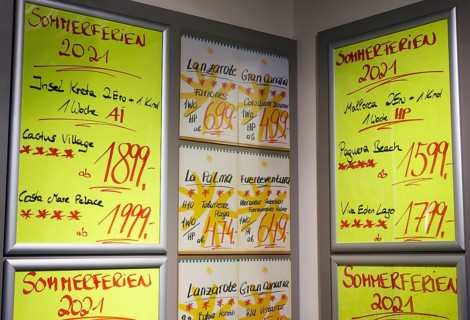 SOMMERFERIEN
2021
Insel Kreta 2Erw + 1 Kind
1 Woche AI
Cactus Village
ab 1899,-
Costa Mare Palace
1999,-
SOMMERFERIEN
2021
Lanzarote
Fariones
1WO
HP
ab 699,-
Gran Canaria
1WO
HP
ab 499,-
La Palma
H10
Taburiente
Playa
1WO
HP
ab 474,-
Fuerteventura
1WO
HP
ab 649,-
Lanzarote
Gran Canaria
RIU
SOMMERFERIEN
2021
Mallorca 2Erw + 1 Kind
1 Woche HP
Paguera Beach
ab 1599,-
Viva Eden Lago
ab 1799,-
SOMMERFERIEN
2021